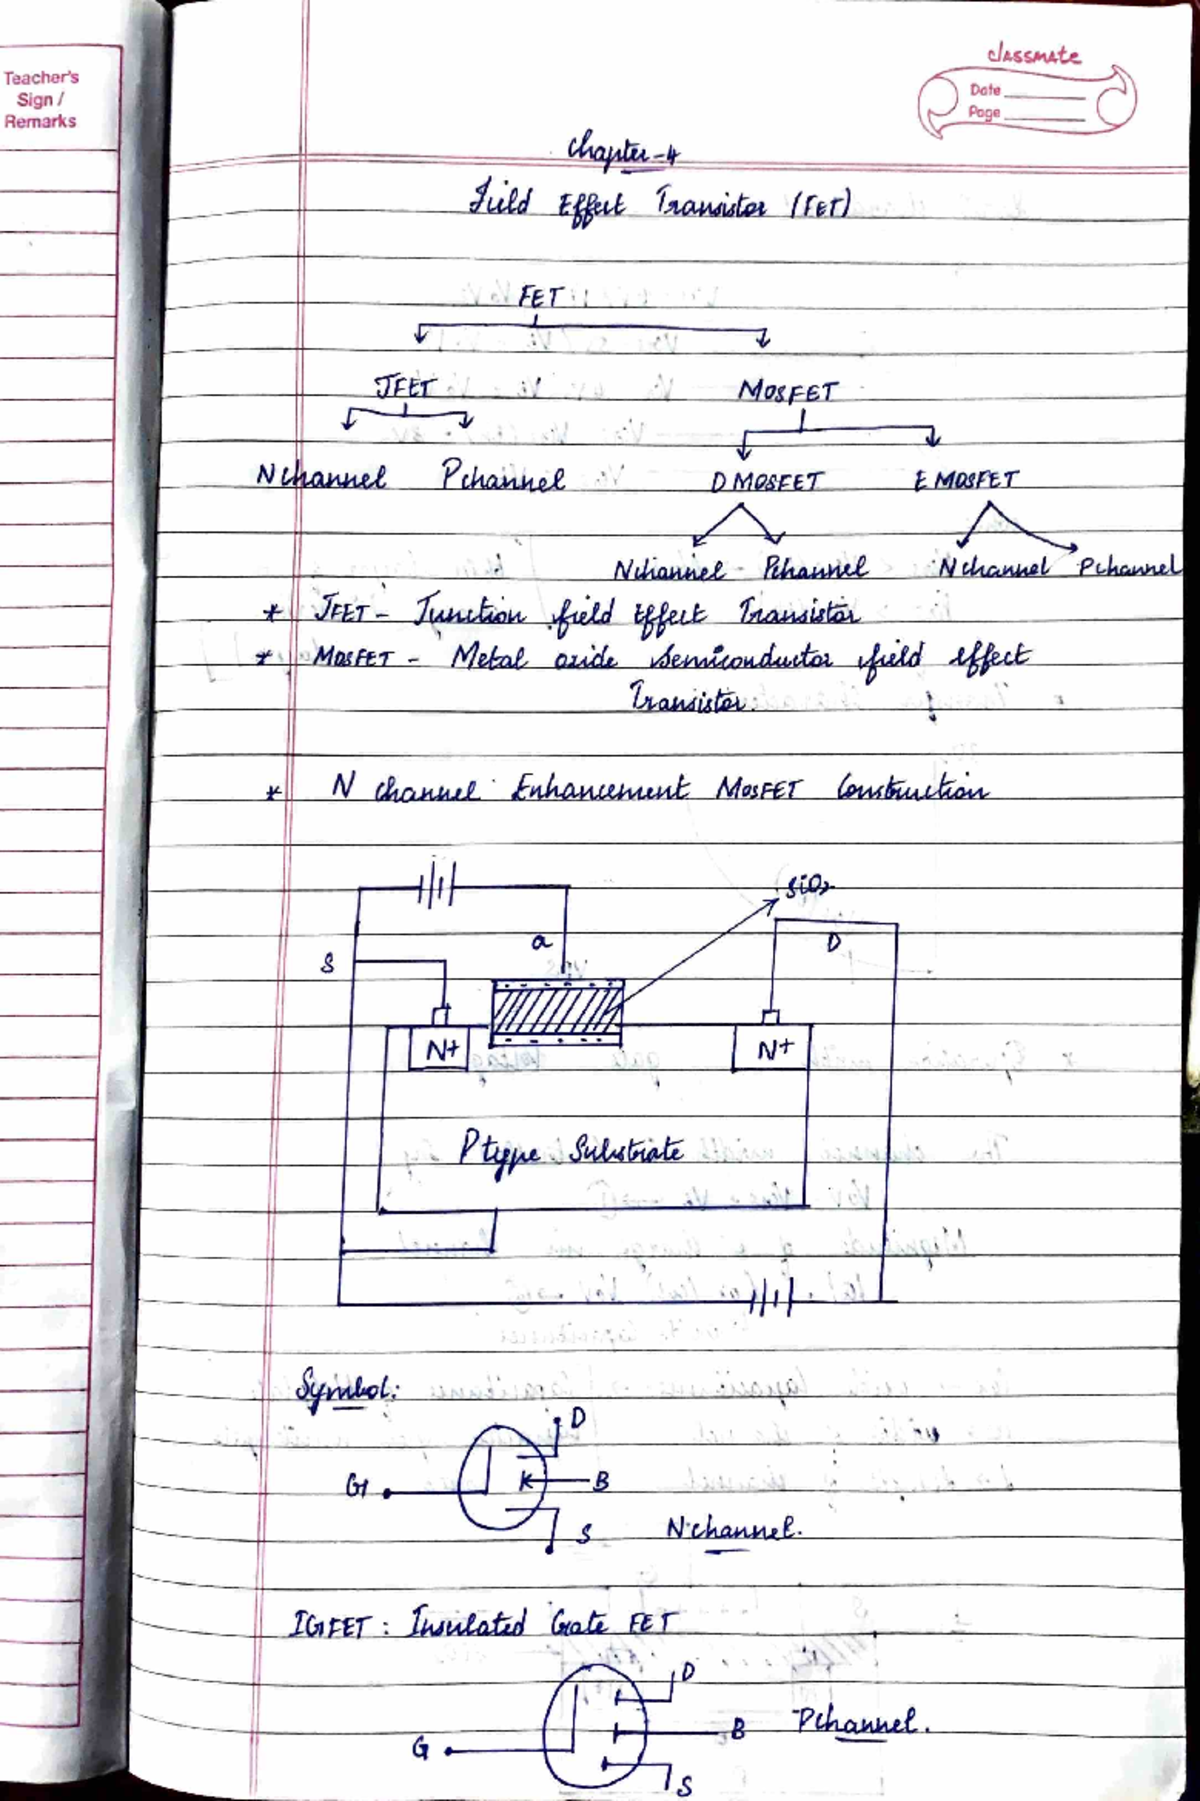 Teacher's
Sign /
Remarks
classmate
Date
Page
Chapter-4
Field Effect Transistor (FET)
FET
JFET MOSFET
N channel P channel D MOSFET E MOSFET
N channel P channel N channel P channel
* JFET - Junction field Effect Transistor
* MOSFET - Metal oxide semiconductor field effect
Transistor.
* N channel Enhancement MOSFET Construction
SiO2
G D
S
N+ N+
P type Substrate
Symbol:
D
G B
S N-channel.
IGFET : Insulated Gate FET
D
G B P channel.
S